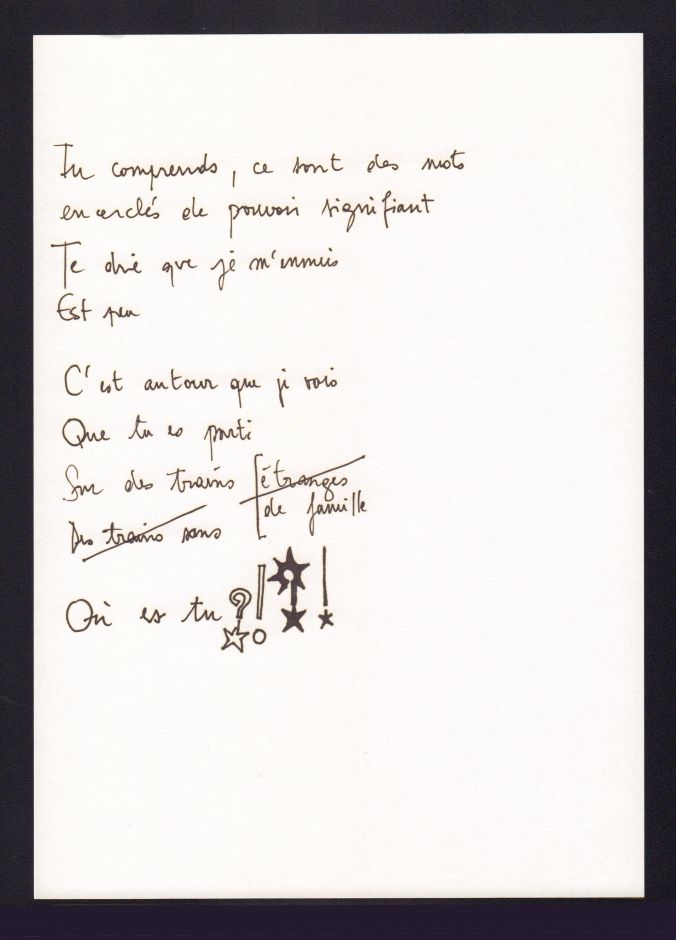 Tu comprends, ce sont des mots
encerclés de pouvoir signifiant
Te dire que je m'ennuis
Est peu
C'est autour que je vois
Que tu es parti
Sur des trains étranges
de famille
Des trains sans
Où es tu ?!!!